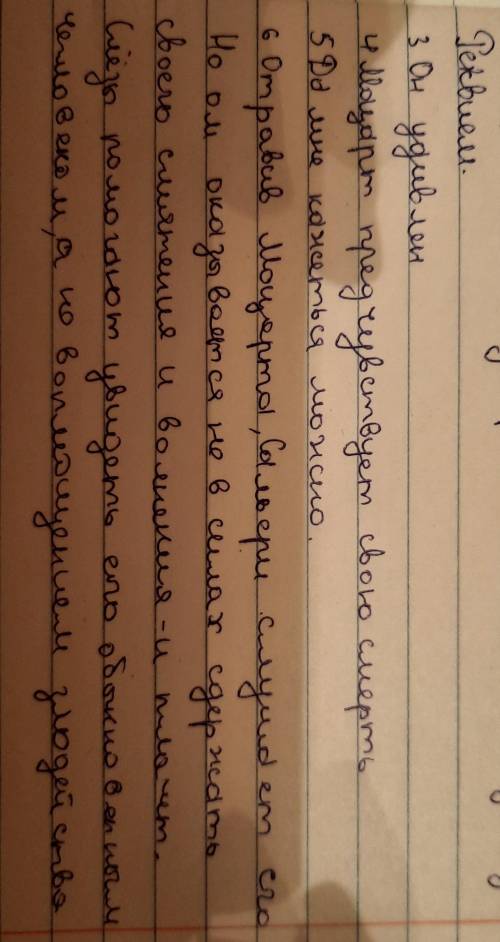 Реквием.
3 Он удивлен
4 Моцарт предчувствует свою смерть
5 Да мне кажеться можно.
6 Отравив Моцарта, Сальери слушает его
Но он оказывается не в силах сдержать
своего смятения и волнения - и плачет.
Слёзы помогают увидеть его обыкновенным
человеком, а не воплощением злодейства